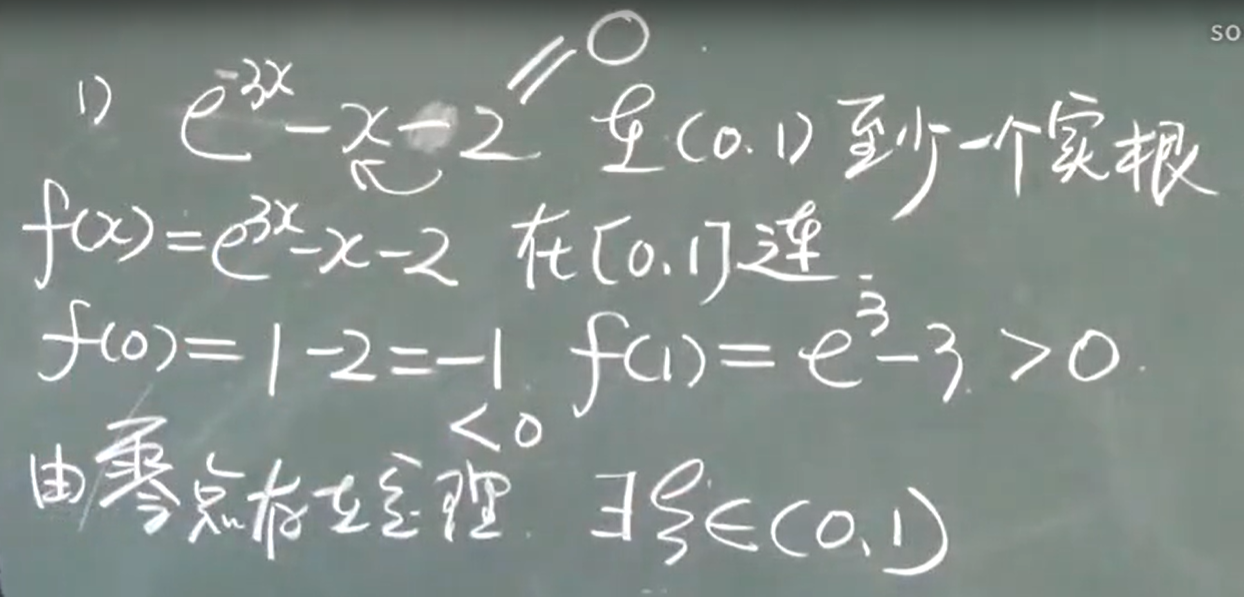 SO
1) e^{-3x} - x - 2 = 0 在(0.1)至少一个实根
f(x) = e^{3x} - x - 2 在[0.1]连.
f(0) = 1 - 2 = -1 < 0 f(1) = e^3 - 3 > 0.
由零点存在定理. ∃ξ∈(0,1)